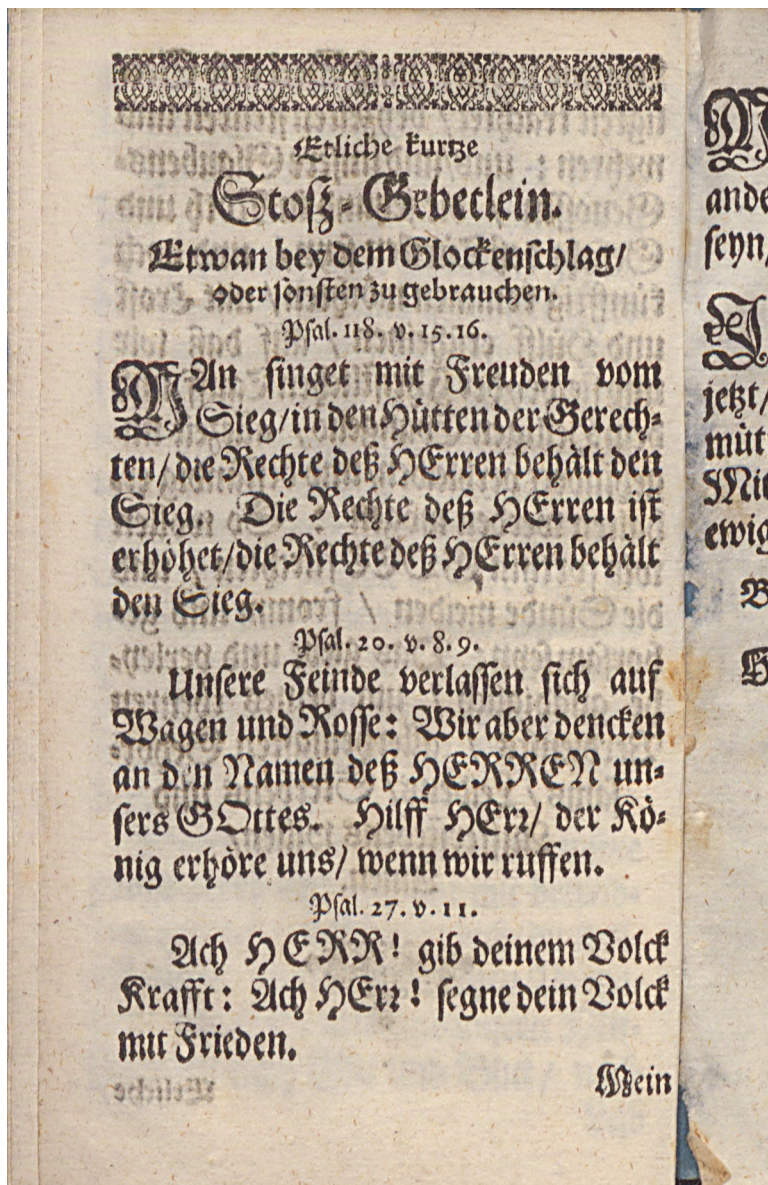 Etliche kurtze
Stosz-Gebetlein.
Etwan bey dem Glockenschlag/
oder sonsten zu gebrauchen.
Psal. 118. v. 15. 16.
MAn singet mit Freuden vom
Sieg/ in den Hütten der Gerech-
ten/ die Rechte deß HErren behält den
Sieg. Die Rechte deß HErren ist
erhöhet/ die Rechte deß HErren behält
den Sieg.
Psal. 20. v. 8. 9.
Unsere Feinde verlassen sich auf
Wagen und Rosse: Wir aber dencken
an den Namen deß HERREN un-
sers GOttes. Hilff HErr/ der Kö-
nig erhöre uns/ wenn wir ruffen.
Psal. 27. v. 11.
Ach HERR! gib deinem Volck
Krafft: Ach HErr! segne dein Volck
mit Frieden.
Mein
ande
seyn/
jetzt/
müt
Mit
ewig